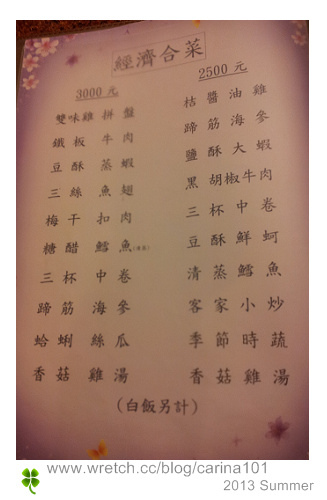 經濟合菜
3000 元
雙味雞拼盤
鐵板牛肉
豆酥蒸蝦
三絲魚翅
梅干扣肉
糖醋鱈魚
三杯中卷
蹄筋海參
蛤蜊絲瓜
香菇雞湯
2500 元
枯醬油雞
蹄筋海參
鹽酥大蝦
黑胡椒牛肉
三杯中卷
豆酥鮮蚵
清蒸鱈魚
客家小炒
季節時蔬
香菇雞湯
(白飯另計)
www.wretch.cc/blog/carina101
2013 Summer